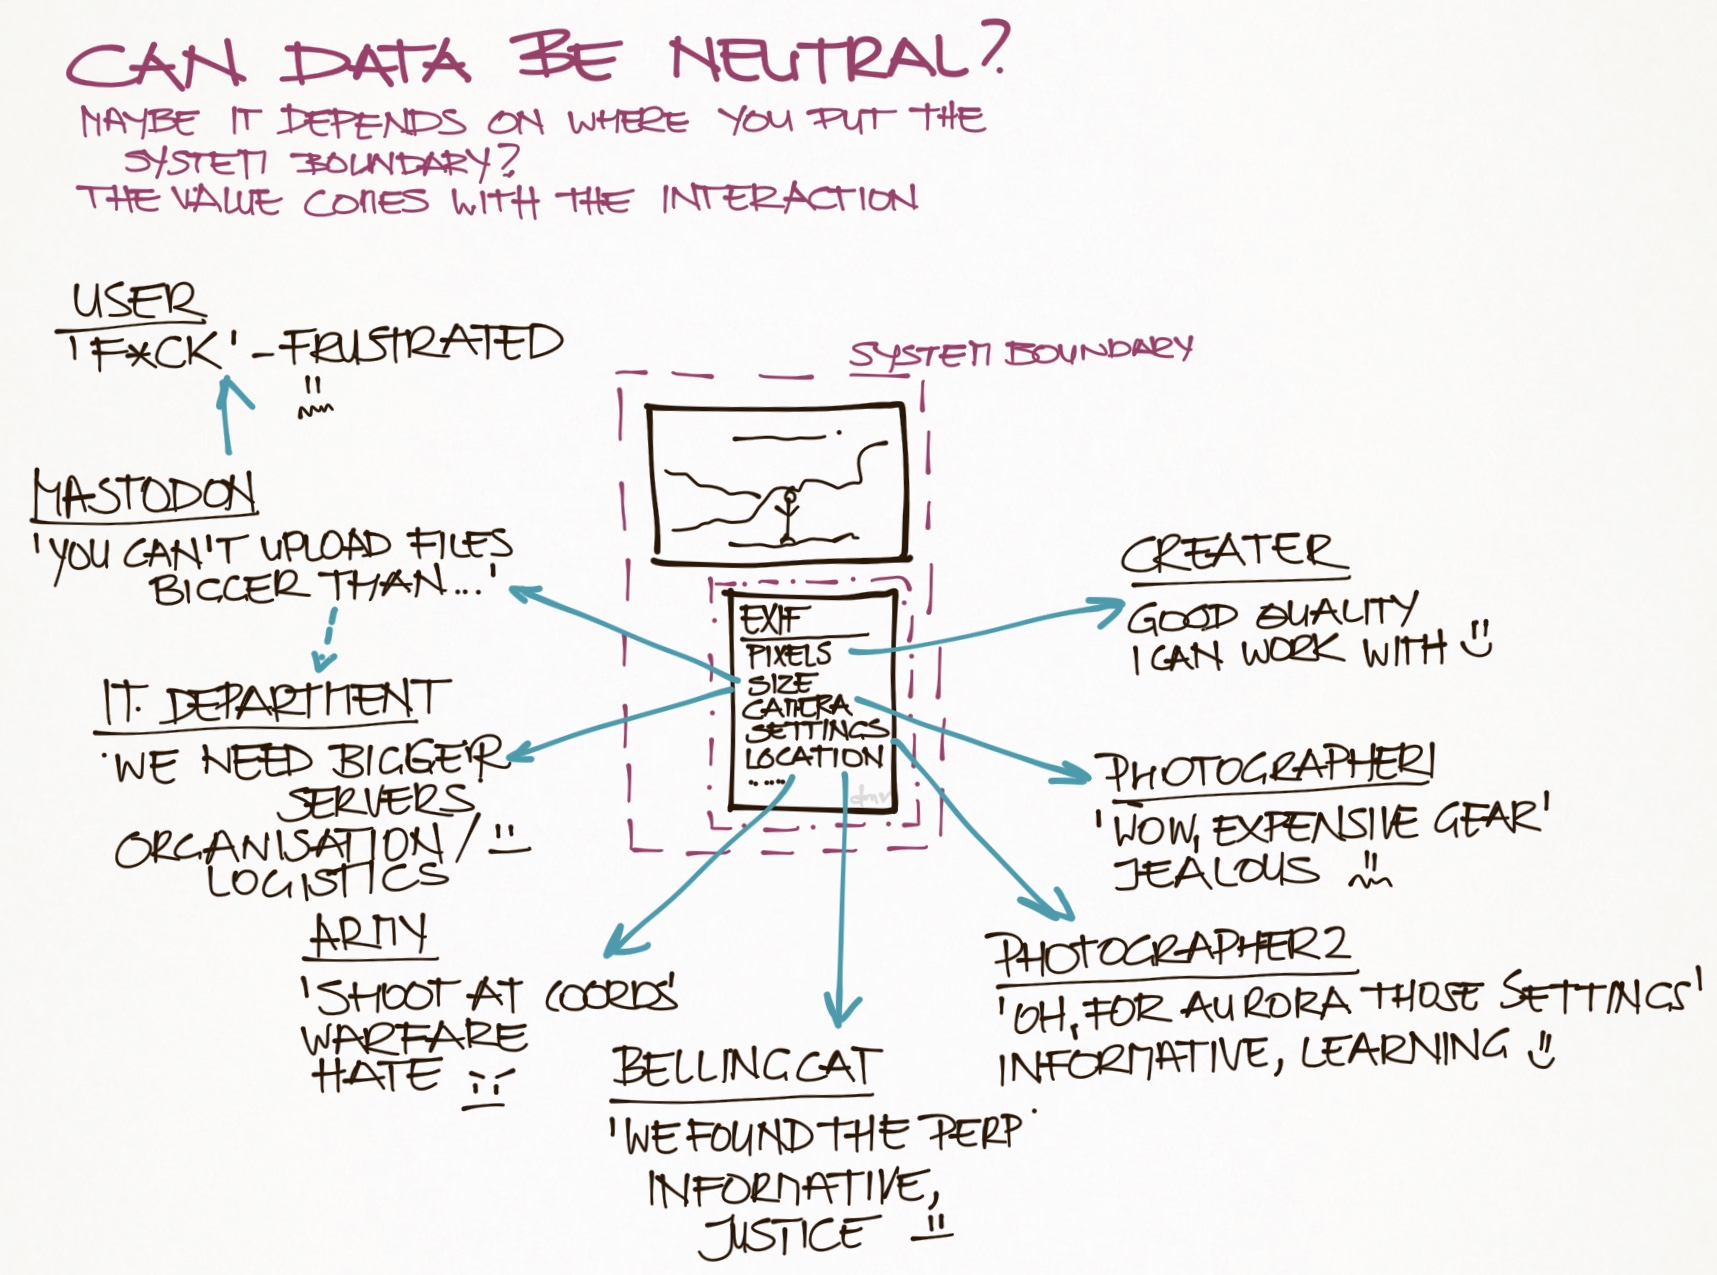 CAN DATA BE NEUTRAL?
MAYBE IT DEPENDS ON WHERE YOU PUT THE
SYSTEM BOUNDARY?
THE VALUE COMES WITH THE INTERACTION
USER
'F*CK' - FRUSTRATED
MASTODON
'YOU CAN'T UPLOAD FILES
BIGGER THAN...'
I.T. DEPARTMENT
'WE NEED BIGGER
SERVERS
ORGANISATION /
LOGISTICS
ARMY
'SHOOT AT COORDS'
WARFARE
HATE
SYSTEM BOUNDARY
EXIF
PIXELS
SIZE
CAMERA
SETTINGS
LOCATION
.....
dmv
BELLINGCAT
'WE FOUND THE PERP'
INFORMATIVE,
JUSTICE
CREATER
GOOD QUALITY
I CAN WORK WITH
PHOTOGRAPHER1
'WOW, EXPENSIVE GEAR'
JEALOUS
PHOTOGRAPHER2
'OH, FOR AURORA THOSE SETTINGS'
INFORMATIVE, LEARNING